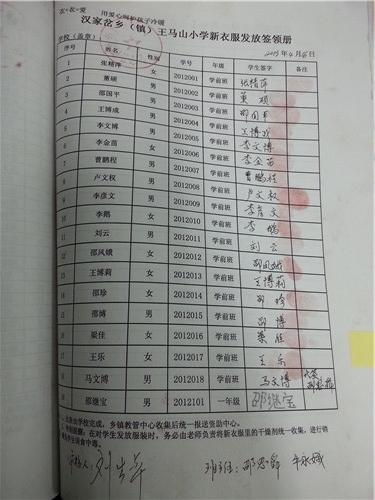 衣+衣=爱 用爱心呵护孩子冷暖
汉家岔乡（镇）王马山小学新衣服发放签领册
学校（盖章） 2013年4月15日
序号 姓名 性别 学号 年级 学生签字 备注
1 张精萍 女 2012001 学前班 张精萍
2 董硕 男 2012002 学前班 董硕
3 邵国平 男 2012003 学前班 邵国平
4 王博成 男 2012004 学前班 王博成
5 李文博 男 2012005 学前班 李文博
6 李金苗 女 2012006 学前班 李金苗
7 曹鹏程 男 2012007 学前班 曹鹏程
8 卢文权 男 2012008 学前班 卢文权
9 李彦文 男 2012009 学前班 李彦文
10 李鹅 女 2012010 学前班 李鹅
11 刘云 男 2012011 学前班 刘云
12 邵凤娥 女 2012012 学前班 邵凤娥
13 王博莉 女 2012013 学前班 王博莉
14 邵珍 女 2012014 学前班 邵珍
15 邵博 男 2012015 学前班 邵博
16 梁佳 女 2012016 学前班 梁佳
17 王乐 女 2012017 学前班 王乐
18 马文博 男 2012018 学前班 马文博
邵继宝 男 2012101 一年级 邵继宝
学校完成，乡镇教管中心收集后统一报送资助中心。
提醒：在对学生发放服装时，务必由老师负责将新衣服里的干燥剂统一收集，进行销
学生误食中毒。
班主任：